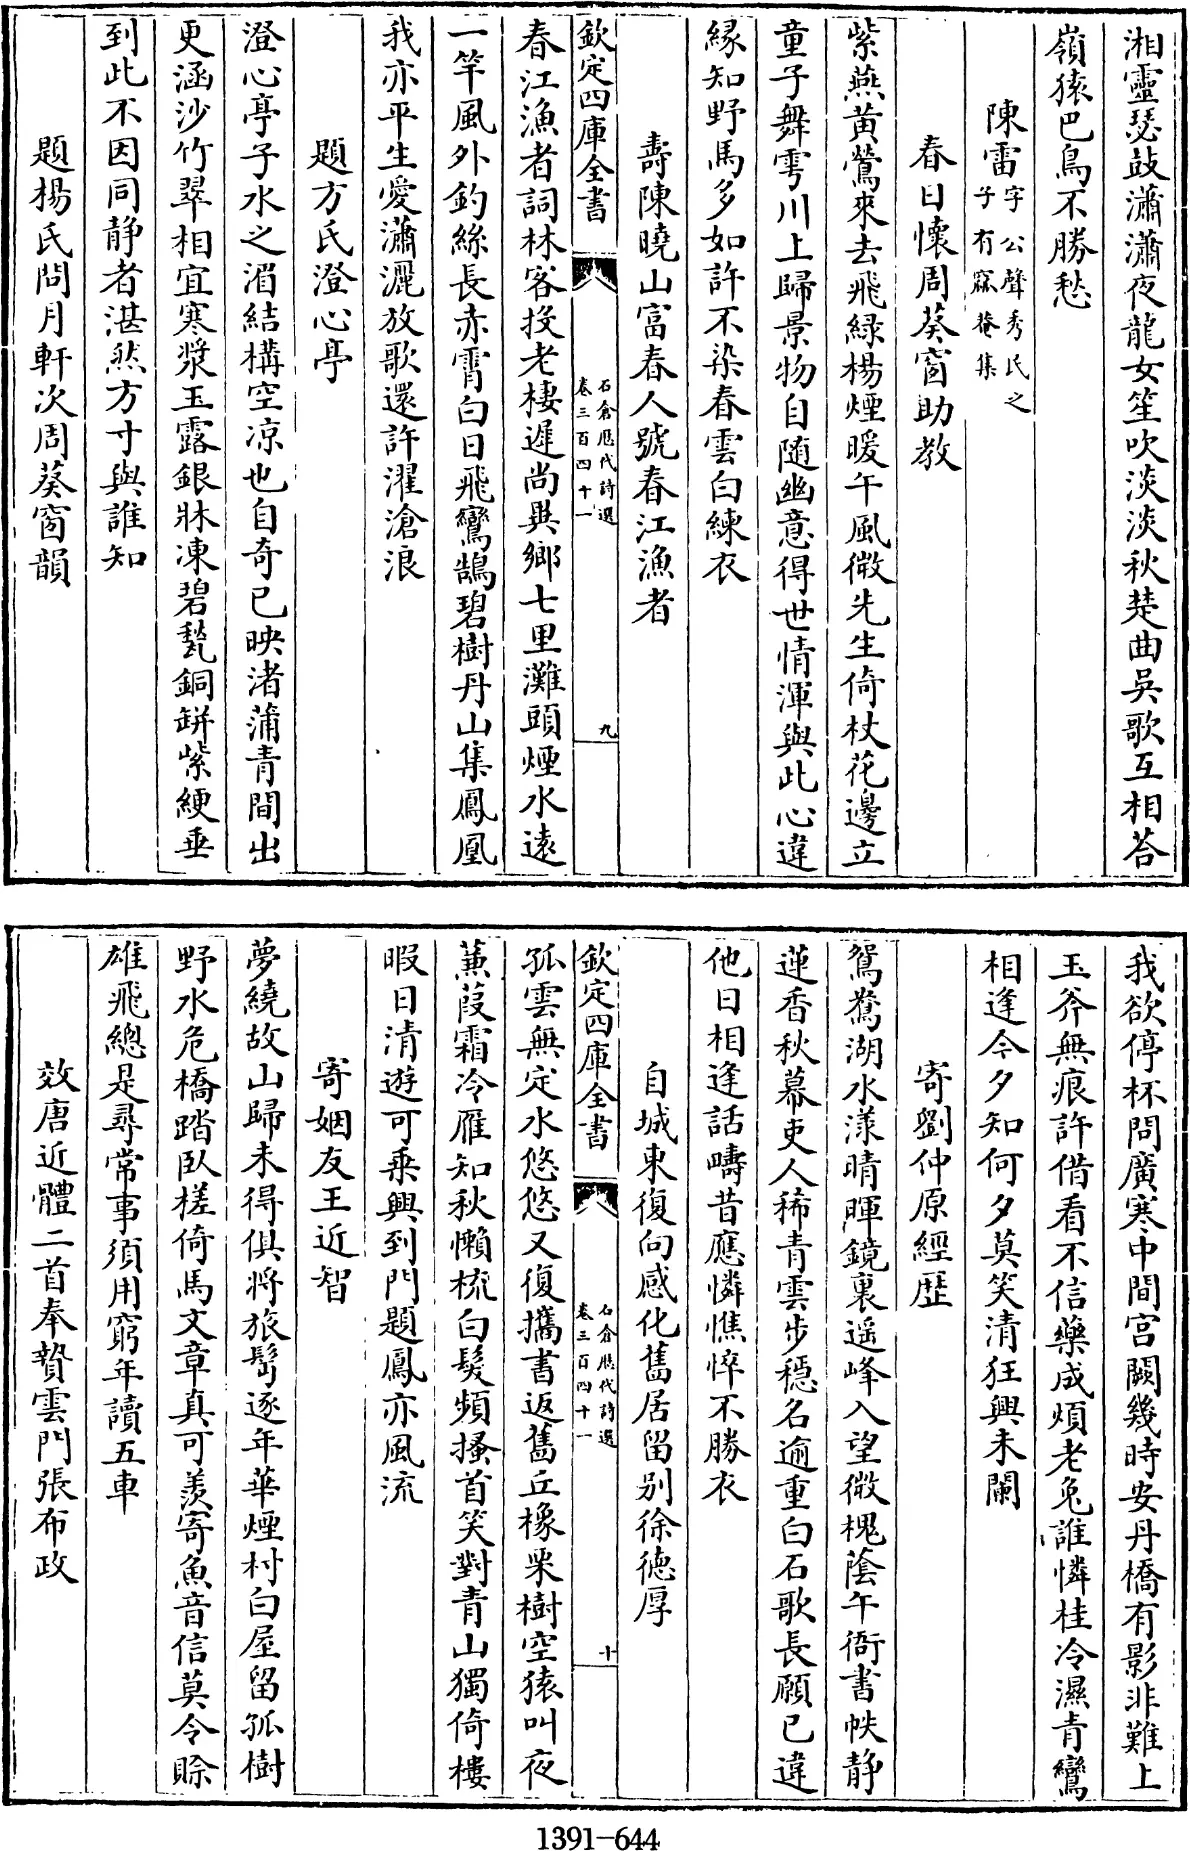 湘靈瑟鼓瀟瀟夜龍女笙吹淡淡秋楚曲吳歌互相荅
嶺猿巴鳥不勝愁
陳雷字公聲秀氏之子有窳菴集
春日懷周葵窗助教
紫燕黄鶯來去飛緑楊煙暖午風微先生倚杖花邊立
童子舞雩川上歸景物自随幽意得世情渾與此心違
縁知野馬多如許不染春雲白練衣
壽陳曉山富春人號春江漁者
欽定四庫全書
石倉歴代詩選
卷三百四十一
九
春江漁者詞林客投老棲遲尚異鄉七里灘頭煙水遠
一竿風外釣絲長赤霄白日飛鸞鵠碧樹丹山集鳳凰
我亦平生愛瀟灑放歌還許濯滄浪
題方氏澄心亭
澄心亭子水之湄結構空凉也自奇已映渚蒲青間出
更涵沙竹翠相宜寒漿玉露銀牀凍碧甃銅缾紫綆垂
到此不因同静者湛然方寸與誰知
題楊氏問月軒次周葵窗韻
我欲停杯問廣寒中間宫闕幾時安丹橋有影非難上
玉斧無痕許借看不信藥成煩老兔誰憐桂冷濕青鸞
相逢今夕知何夕莫笑清狂興未闌
寄劉仲原經歴
鴛鴦湖水漾晴暉鏡裏遥峰入望微槐蔭午衙書帙静
蓮香秋幕吏人稀青雲步穩名逾重白石歌長願已違
他日相逢話疇昔應憐憔悴不勝衣
自城東復向感化舊居留别徐德厚
欽定四庫全書
石倉歴代詩選
卷三百四十一
十
孤雲無定水悠悠又復攜書返舊丘橡栗樹空猿叫夜
蒹葭霜冷雁知秋懶梳白髮頻搔首笑對青山獨倚樓
暇日清遊可乗興到門題鳳亦風流
寄姻友王近智
夢繞故山歸未得俱將旅髩逐年華煙村白屋留孤樹
野水危橋踏臥槎倚馬文章真可羡寄魚音信莫令賒
雄飛總是尋常事須用窮年讀五車
效唐近體二首奉贄雲門張布政
1391-644